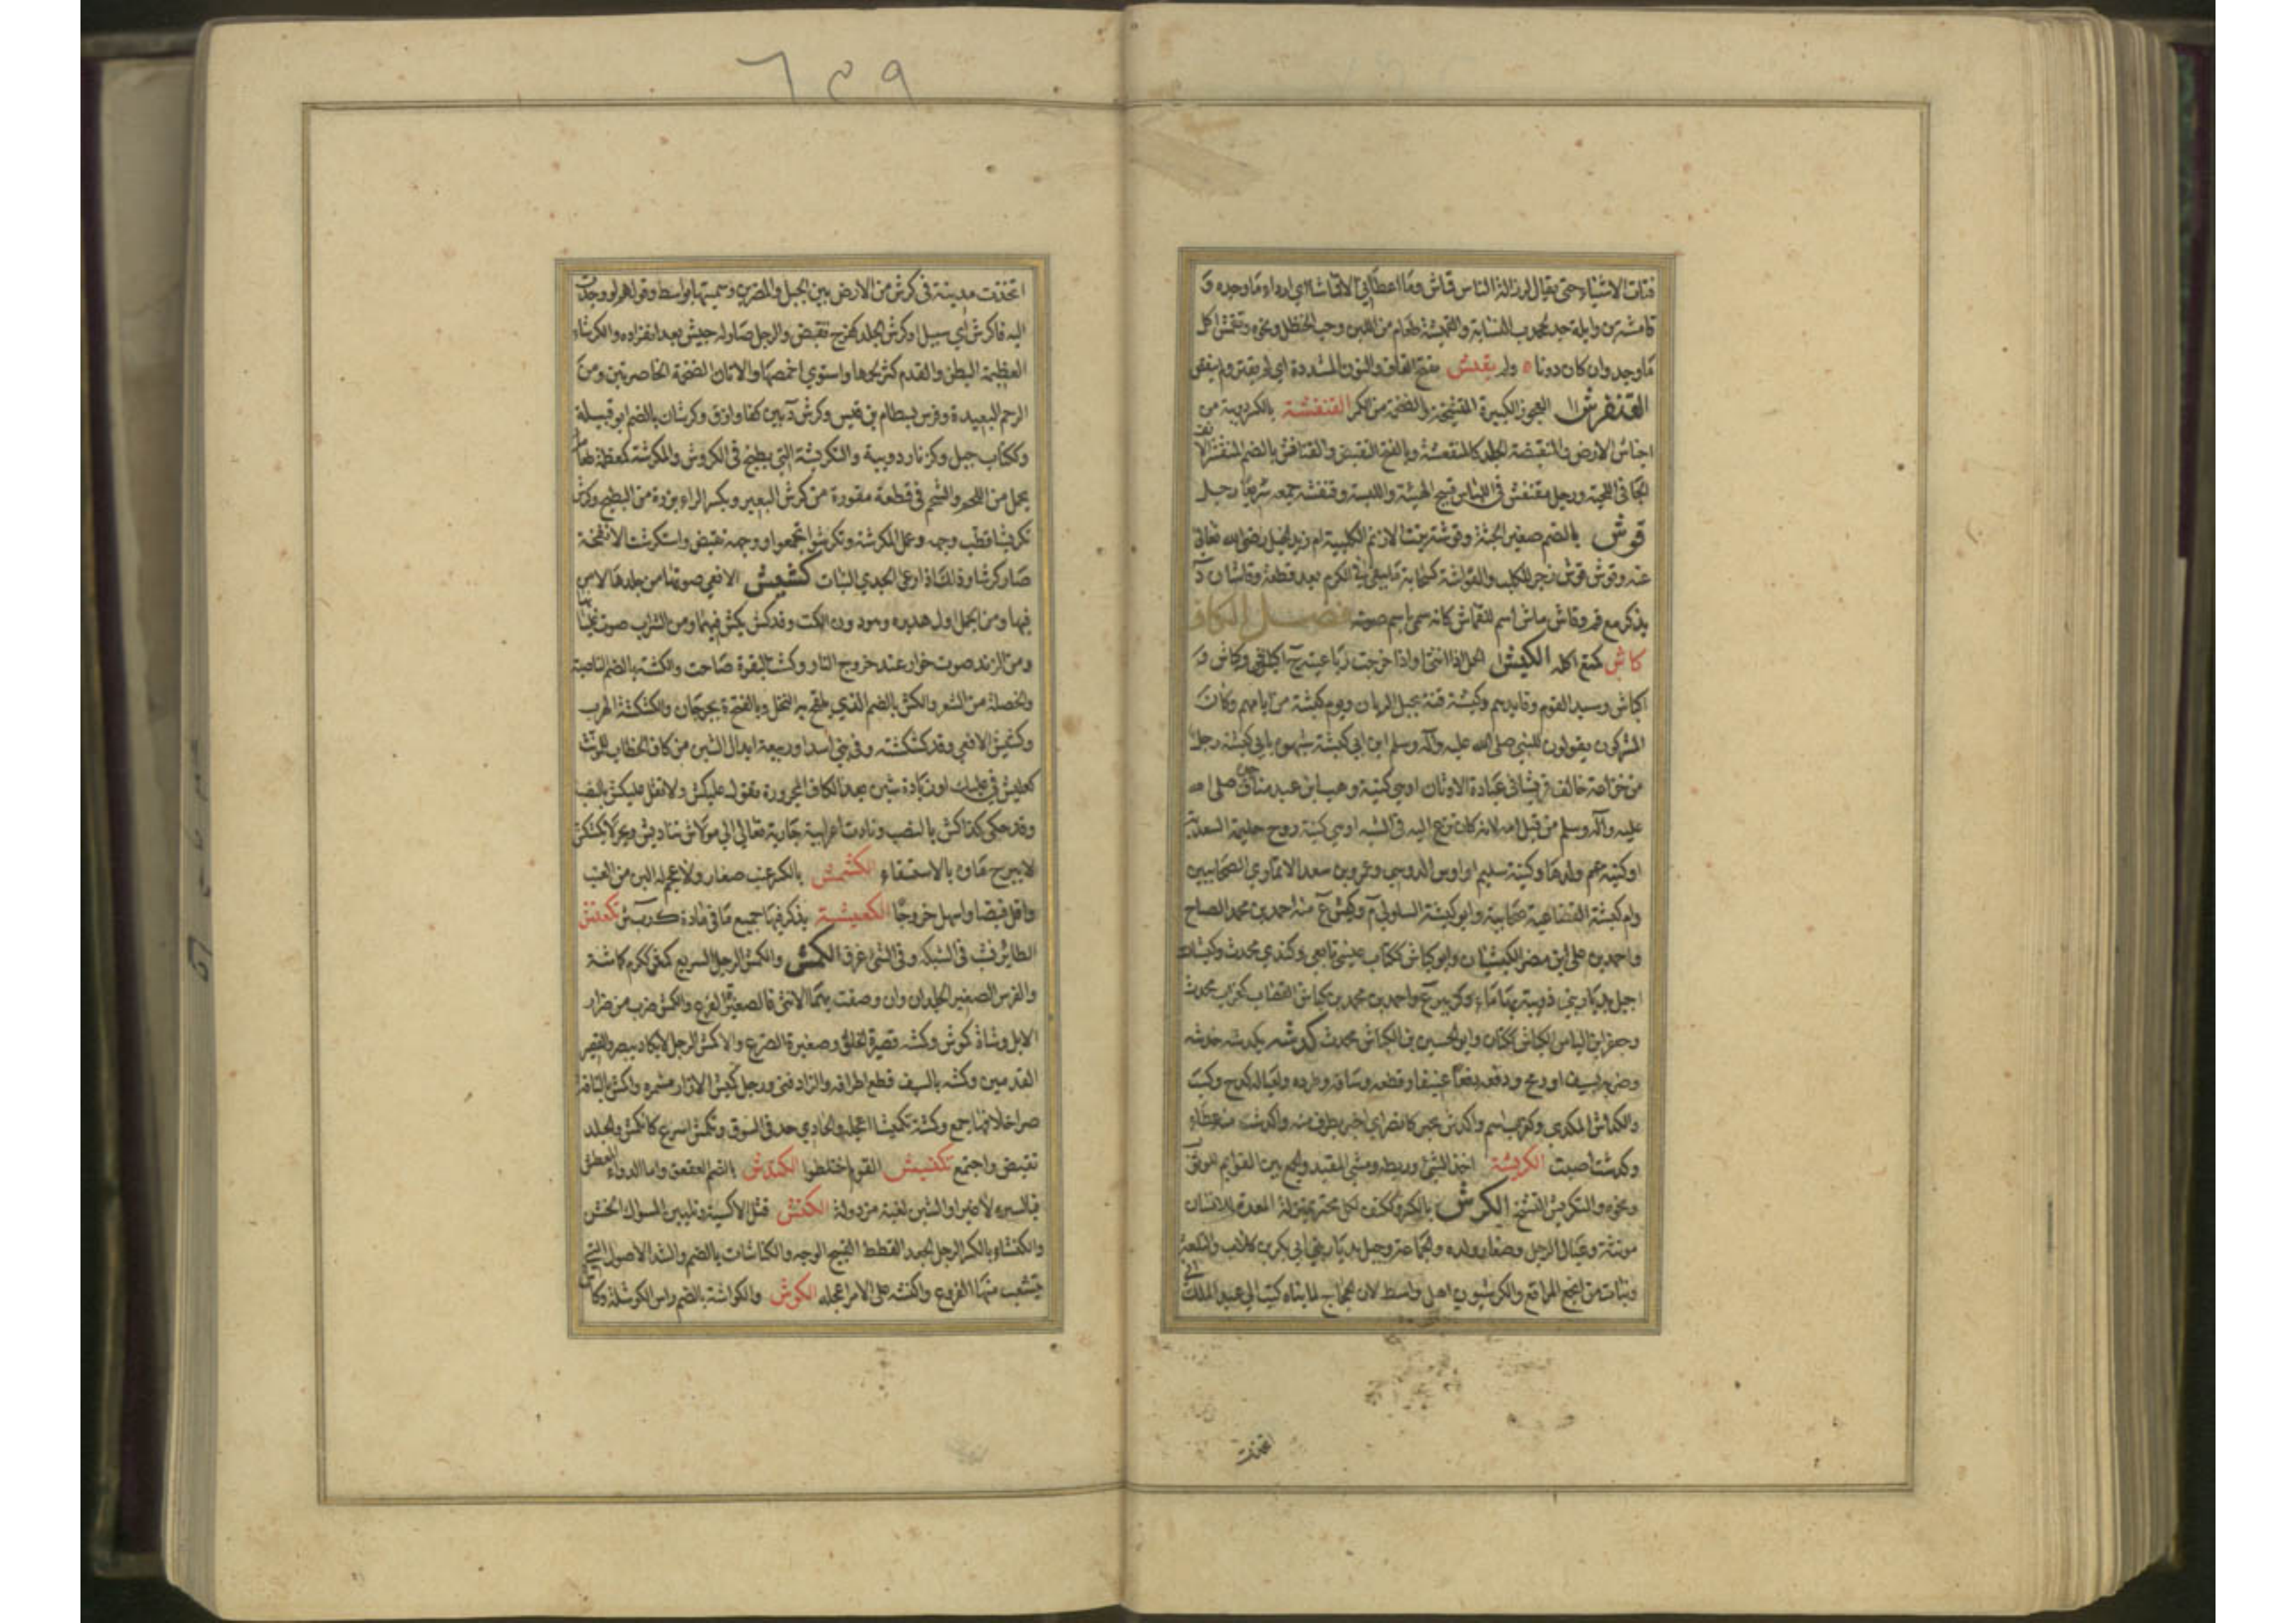 فتات الاشياء حتى يقال لرذالة الناس قماش وما اعطاني الا قماشا اي اردء ما وجده و
ما وجد وان كان دونا ولم يقنش بفتح القاف والنون المشددة اي لم يقتر ولم
القنفرش العجوز الكبيرة المتشنجة والضخمة من الكمر القنفشة بالكسر دويبة من
اجناس الارض والمتقبضة الجلد كالمتقعشة وبالفتح التقبض والقنافش بالضم المتقشر الانف
الجافي اللحية ورجل مقنفش في اللباس قبيح الهيئة واللبسة وقنفشه جمعه سريعا رجل
قوش بالضم صغير الجثة وقوشة بنت الازنم الكلبية ام زيد الخيل رضي الله تعالى
عنه وقوش قوش زجر للكلب والقواشة كثمامة ما يبقى في الكرم بعد قطفه وقاشان د
يذكر مع قم وقاش ماش اسم للقماش كانه سمي باسم صوته فصل الكاف
كاش كمنع اكله الكبش الحمل اذا اثنى او اذا خرجت رباعيته ج اكبش وكباش و
اكباش وسيد القوم وقايدهم وكبشة قنة بجبل الريان ويوم كبشة من ايامهم وكان
المشركون يقولون للنبي صلى الله عليه وآله وسلم ابن ابي كبشة شبهوه بابي كبشة رجل
من خزاعة خالف قريشا في عبادة الاوثان او هي كنية وهب ابن عبد مناف جده صلى الله
عليه وآله وسلم من قبل امه لانه كان نزع اليه في الشبه او هي كنية زوج حليمة السعدية
او كنية عم ولدها وكنية سليم او اوس الدوسي وعمرو بن سعد الانماري الصحابيين
وام كبشة القضاعية صحابية وابو كبشة السلولي م وكبش ع منه احمد بن محمد الصباح
واحمد بن علي ابن مضر الكبشيان وابو كباش ككتاب عيشي تابعي وكندي محدث وكبشات
اجبل بديار بني ذويبة بهن ماء وكزبير ع واحمد بن محمد بن كباش القصاب كغراب محدث
وجعفر ابن الياس الكباش ككتان وابو الحسين بن الكباش محدث كدشه يكدشه خدشه
وضربه بسيف او رمح ودفعه دفعا عنيفا وقطعه وساقه وطرده ولعياله كدح وكسب
والكداش المكدي وكزبير اسم واكدش بخبر كانصر اي اخبر بطرف منه واكدشت منه عطاء
وكدشت اصبت الكربشة اخذ الشئ وربطه ومشي المقيد والجمع بين القوايم للوثب
ونحوه والتكربش التشنج الكرش بالكسر وككتف لكل مجتر بمنزلة المعدة للانسان
مونثة وعيال الرجل وصغار ولده والجماعة وجبل بديار بني ابي بكر بن كلاب والقلعة
ونبات من انجع المراتع والكرشيون اهل واسط لان الحجاج لما بناه كتب الى عبد الملك اني
اتخذت
٦٤٩
اتخذت مدينة في كرش من الارض بين الجبل والمصرين وسميتها بواسط وقولهم لو وجدت
اليه فاكرش اي سبيلا وكرش الجلد كفرح تقبض والرجل صار له جيش بعد انفراده والكرشاء
العظيمة البطن والقدم كثر لحمها واستوى اخمصها والاتان الضخمة الخاصرتين ومن
الرحم البعيدة وفرس بسطام بن قيس وكرش د بين كفا وازق وكرشان بالضم ابو قبيلة
وككتاب جبل وكزنار دويبة والتكريشة التي يطبخ في الكروش والمكرشة كمعظمة طعام
يعمل من اللحم والشحم في قطعة مقورة من كرش البعير وبكسر الراء بزرة من البطيخ وكرش
تكريشا قطب وجهه وعمل المكرشة وتكرشوا تجمعوا ووجهه تقبض واستكرشت الانفحة
صارت كرشا وذلك اذا رعى الجدي النبات كشيش الافعى صوتها من جلدها لا من
فيها ومن الجمل اول هديره وهو دون الكت وقد كش يكش فيهما ومن الشراب صوت غليانه
ومن الزند صوت خوار عند خروج النار وكشت البقرة صاحت والكشة بالضم الناصية
والخصلة من الشعر والكش بالضم الذي يلقح به النخل وبالفتح ة بجرجان والكشكشة الهرب
وكشيش الافعى وقد كشكشت وفي بني اسد او ربيعة ابدال الشين من كاف الخطاب للمونث
كعليش في عليك او زيادة شين بعد الكاف المجرورة تقول عليكش ولا تقل عليكش بالنصب
وقد حكى كذاكش بالنصب ونادت اعرابية جارية تعالي الى مولاش يناديش وبحر لا يكشكش
لا ينزح مآؤه بالاستقاء الكشمش بالكسر عنب صغار ولا عجم له الين من العنب
واقل قبضا واسهل خروجا الكعبشة يذكر فيها جميع ما في مادة كربش تكعنش
الطاير نشب في الشبكة وفي الشئ غرق الكمش والكمش الرجل السريع كمش ككرم كماشة
والفرس الصغير الجردان وان وصفت بها الانثى فالصغيرة الضرع والكمش ضرب من صرار
الابل وشاة كموش وكمشة قصيرة الخلف وصغيرة الضرع والاكمش الرجل لا يكاد يبصر والقصير
القدمين وكمشه بالسيف قطع اطرافه والزاد فني ورجل كميش الازار مشمره واكمش بالناقة
صر اخلافها جمع وكمشه تكميشا اعجله والحادي جد في السوق وتكمش اسرع كانكمش والجلد
تقبض واجتمع تكنبش القوم اختلطوا الكندش بالضم العقعق واما الدواء المعطش
فبالسين لا غير او الشين لغية مرذولة الكنش فتل الاكسية وتليين المسواك الخشن
والكنشاء بالكسر الرجل الجعد القطط القبيح الوجه والكناشات بالضم والشد الاصول التي
يتشعب منها الفروع واكنشه على الامر اعجله الكوش والكواشة بالضم راس الكوشلة وكاش